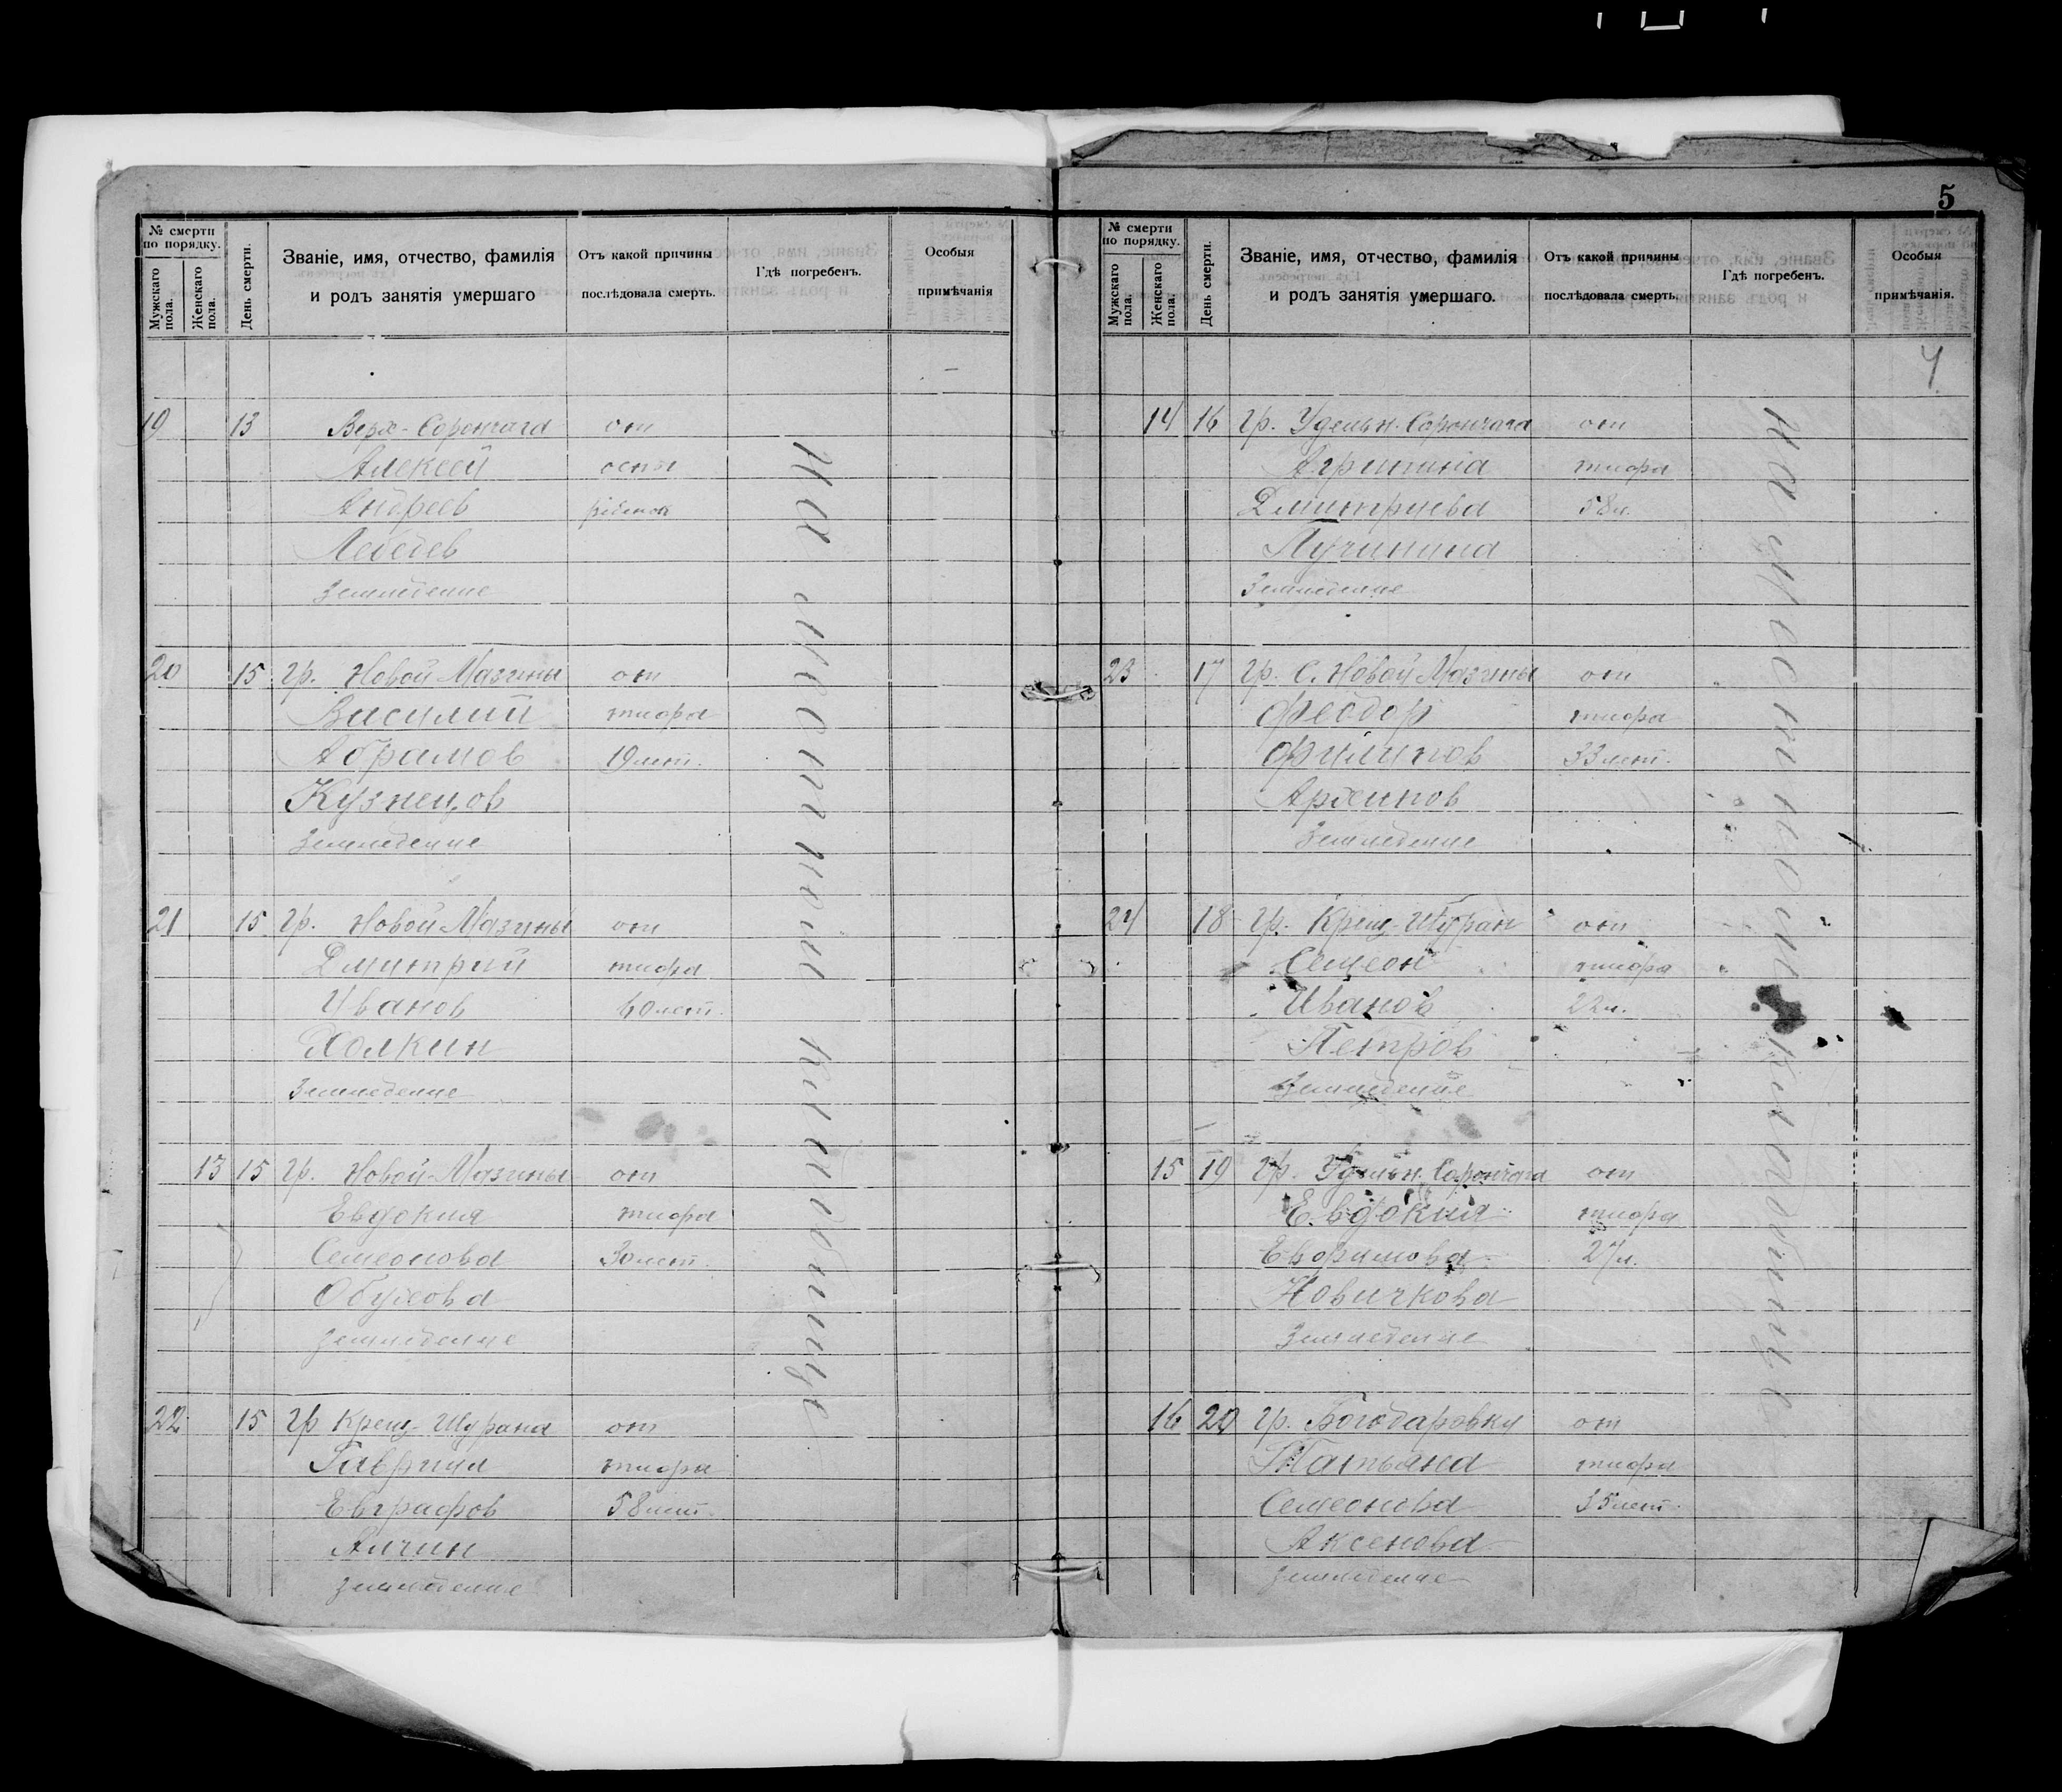 № смерти по порядку.
Мужскаго пола.
Женскаго пола.
День смерти.
Званіе, имя, отчество, фамилія
и родъ занятія умершаго
Отъ какой причины
послѣдовала смерть.
Гдѣ погребенъ.
Особыя
примѣчанія
19 13 Верх-Сорончага от
Алексей оспы
Андреев ребенок
Лебедев
Земледелие
20 15 Гр. Новой Мазины от
Василий тифа
Абрамов 19 лет.
Кузнецов
Земледелие
21 15 Гр. Новой Мазины от
Дмитрий тифа
Иванов 60 лет.
Полкин
Земледелие
13 15 Гр. Новой-Мазины от
Евдокия тифа
Семеонова 30 лет.
Обухова
Земледелие
22 15 Гр Крещ-Шурана от
Гавриил тифа
Евграфов 58 лет.
Алчин
Земледелие
На местном кладбище
5
№ смерти по порядку.
Мужскаго пола.
Женскаго пола.
День смерти.
Званіе, имя, отчество, фамилія
и родъ занятія умершаго.
Отъ какой причины
послѣдовала смерть.
Гдѣ погребенъ.
Особыя
примѣчанія.
4
14 16 Гр. Удельн. Сорончага от
Агрипина тифа
Дмитриева 58 л.
Пучинина
Земледелие
23 17 Гр. С. Новой Мазины от
Феодор тифа
Филипов 33 лет.
Архипов
Земледелие
24 18 Гр. Крещ-Шуран от
Семеон тифа
Иванов 22 л.
Петров
Земледелие
15 19 Гр. Удельн. Сорончага от
Евдокия тифа
Ефоримова 27 л.
Новичкова
Земледелие
16 20 Гр. Богодаровки от
Татьяна тифа
Семеонова 35 лет.
Аксенова
Земледелие
На местном кладбище